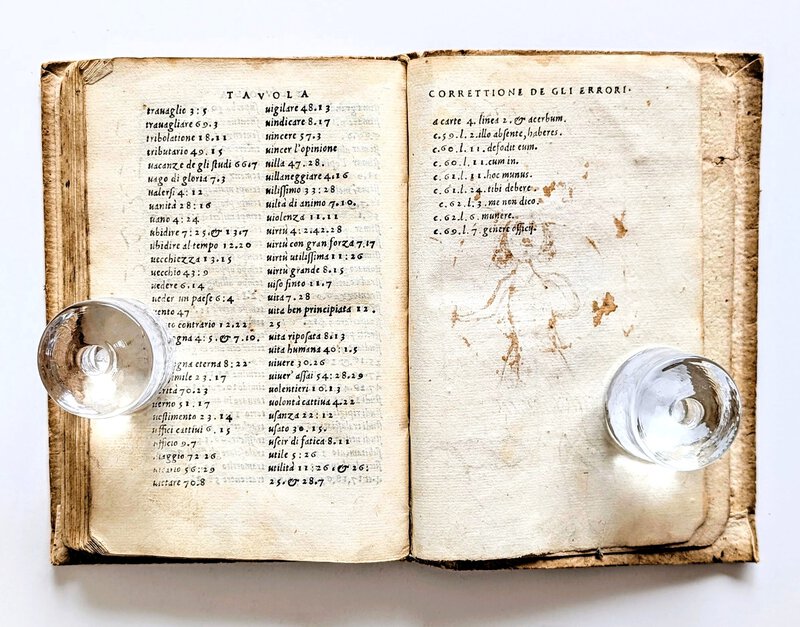 TAVOLA
travaglio 3:5
travagliare 69.3
tribolatione 18.11
tributario 49.15
vacanze de gli studi 66.7
vago di gloria 7.3
valersi 4:12
vanità 28:16
vano 4:24
ubidire 7:25.& 13.7
ubidire al tempo 12.20
vecchiezza 13.15
vecchio 43:9
vedere 6.14
veder un paese 6:4
vento 47
contrario 12.22
4:5.& 7.10.
eterna 8:22
simile 23.17
verità 70.23
verno 51.17
vestimento 23.14
uffici cattivi 6.15
ufficio 9.7
viaggio 72 26
vicario 56:29
vietare 70.8
vigilare 48.13
vindicare 8.17
vincere 57.3
vincer l'opinione
villa 47.28.
villaneggiare 4.16
vilissimo 33:28
viltà di animo 7.10.
violenza 11.11
virtù 4:2.42.28
virtù con gran forza 7.17
virtù utilissima 11:26
virtù grande 8.15
viso finto 11.7
vita 7.28
vita ben principiata 12.
25
vita riposata 8.13
vita humana 40:1.5
vivere 30.26
viver' assai 54:28.29
volentieri 10.13
volontà cattiva 4.22
usanza 22:12
usato 30.15.
uscir di fatica 8.11
utile 5:26
utilità 11:26.& 26:
25.& 28.7
CORRETTIONE DE GLI ERRORI.
a carte 4. linea 2. & acerbum.
c.59.l.2.illo absente, haberes.
c.60.l.11.defodit eum.
c.60.l.11.cum in.
c.61.l.11.hoc munus.
c.61.l.24.tibi debere.
c.62.l.3.me non dico.
c.62.l.6.munere.
c.69.l.7.genere officij.